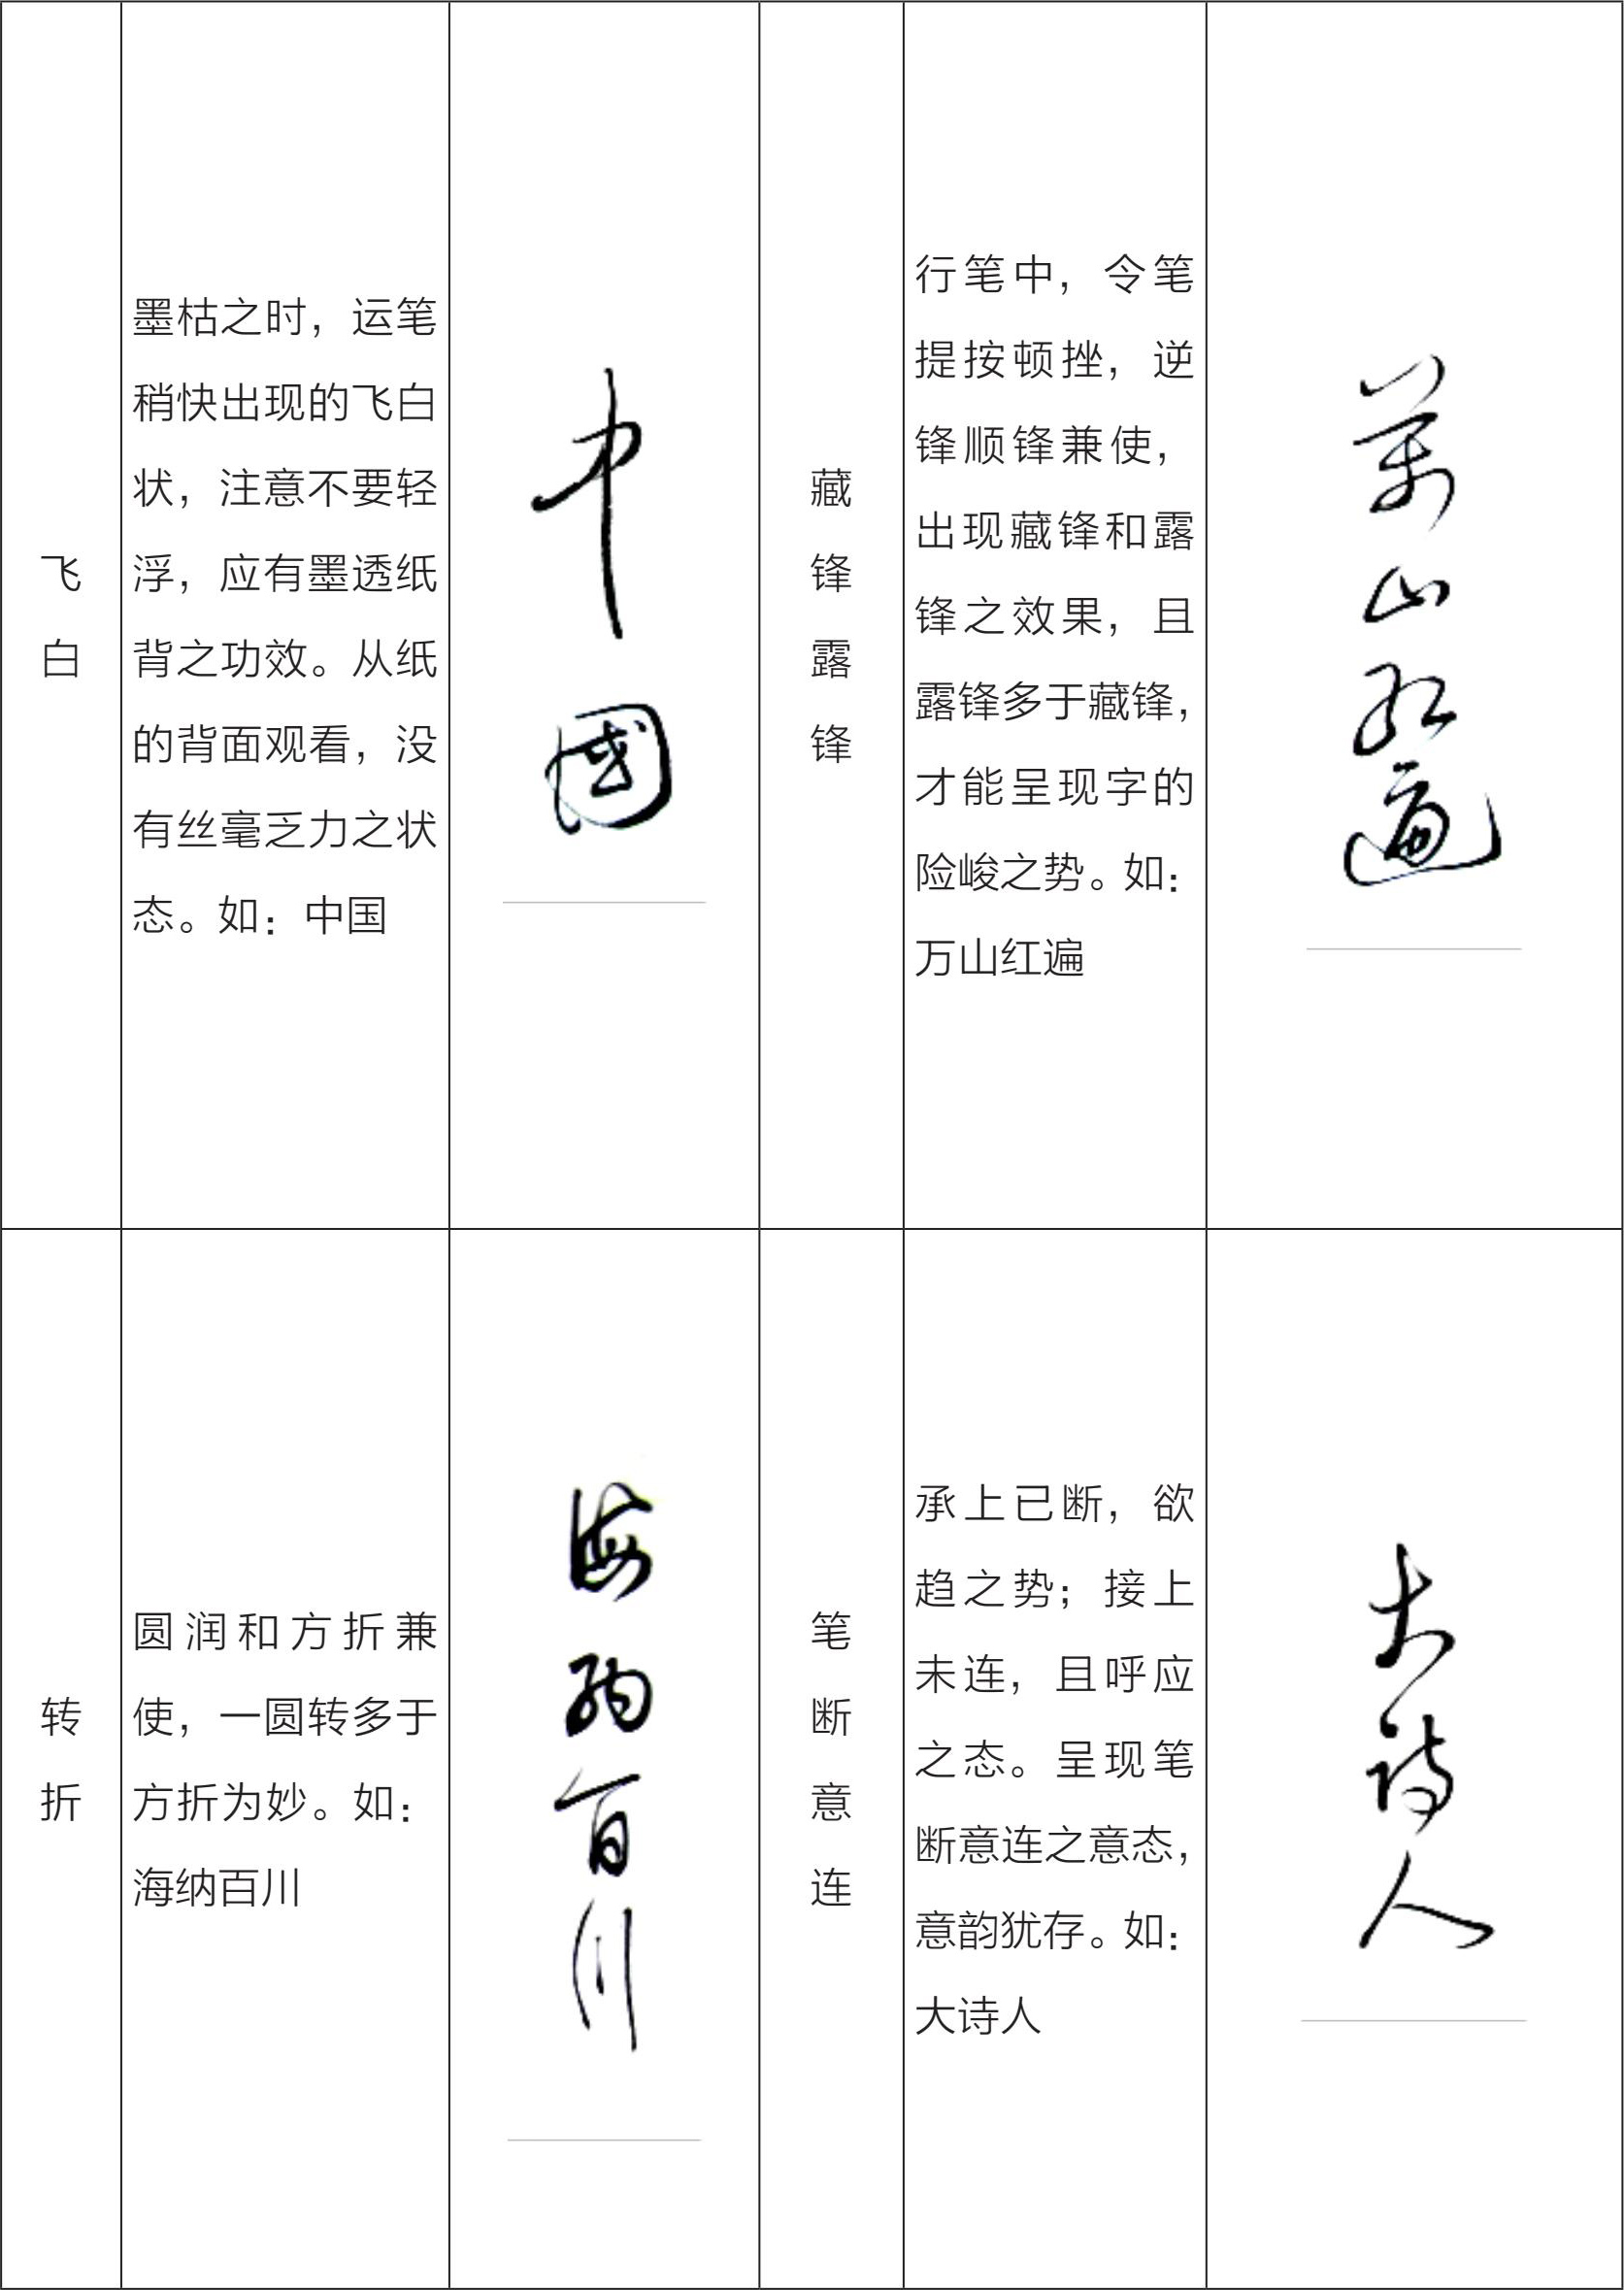 飞
白
墨枯之时，运笔
稍快出现的飞白
状，注意不要轻
浮，应有墨透纸
背之功效。从纸
的背面观看，没
有丝毫乏力之状
态。如：中国
中
國
藏
锋
露
锋
行笔中，令笔
提按顿挫，逆
锋顺锋兼使，
出现藏锋和露
锋之效果，且
露锋多于藏锋，
才能呈现字的
险峻之势。如：
万山红遍
萬
山
红
遍
转
折
圆润和方折兼
使，一圆转多于
方折为妙。如：
海纳百川
海
纳
百
川
笔
断
意
连
承上已断，欲
趋之势；接上
未连，且呼应
之态。呈现笔
断意连之意态，
意韵犹存。如：
大诗人
大
诗
人